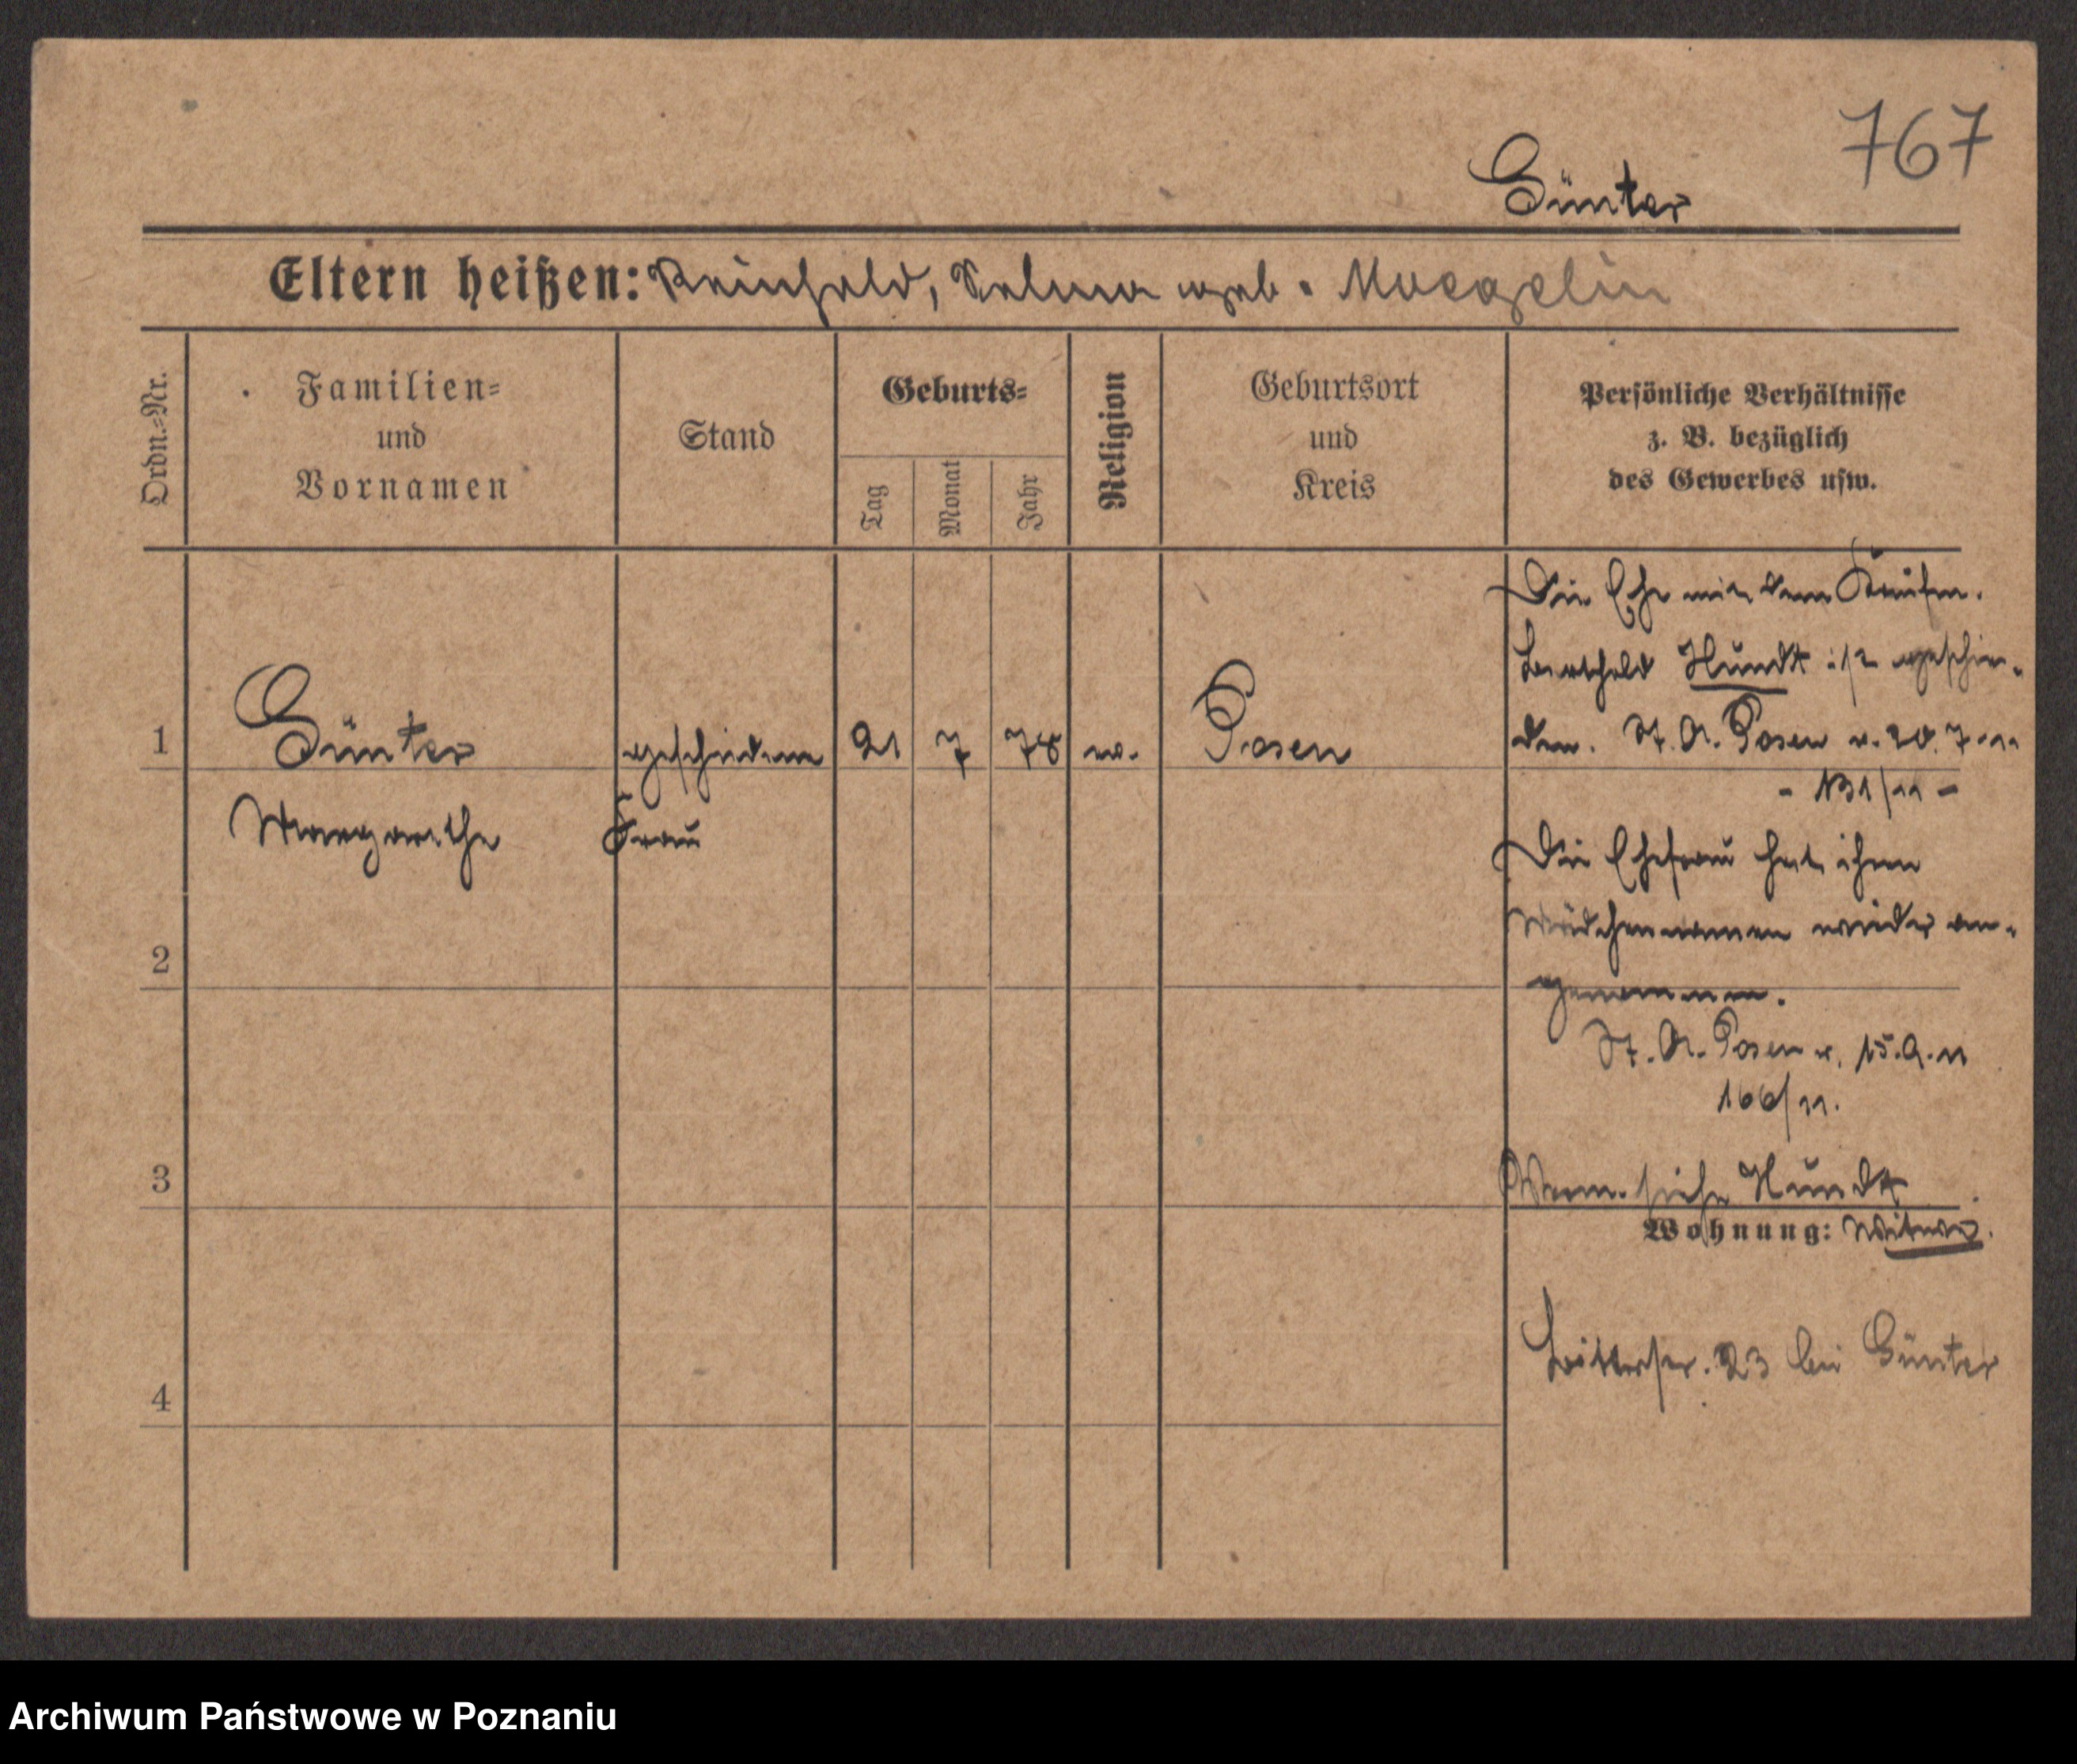 767
Günter
Eltern heißen: Reinhold, Selma geb. Moegelin
Ordn.-Nr.
Familien-
und
Vornamen
Stand
Geburts-
Tag
Monat
Jahr
Religion
Geburtsort
und
Kreis
Persönliche Verhältnisse
z. B. bezüglich
des Gewerbes usw.
1
Günter
Margarethe
geschiedene
Frau
21
7
78
ev.
Posen
Die Ehe mit dem Kaufm.
Berthold Hundt ist geschie-
den. St. A. Posen v. 20.7.11
- 131/11 -
Die Ehefrau hat ihren
Mädchennamen wieder an-
genommen.
St. A. Posen v. 15.9.11
166/11.
siehe Hundt
2
3
Wohnung:
4
23 bei Günter
Archiwum Państwowe w Poznaniu